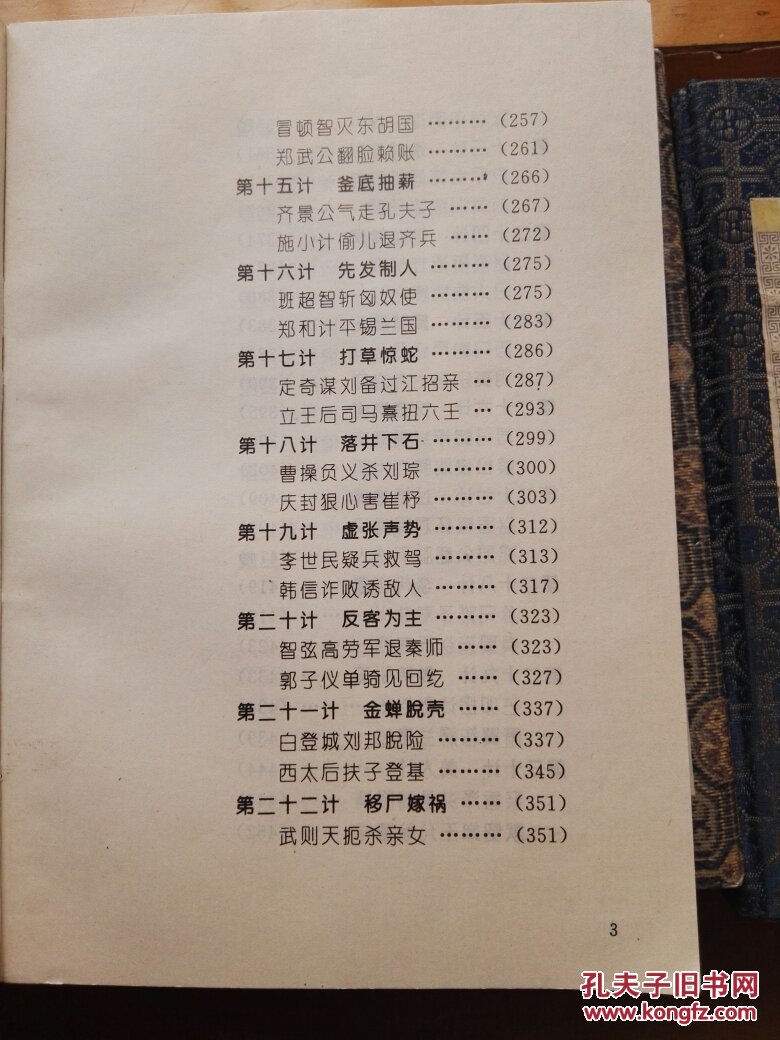 冒顿智灭东胡国 ……… (257)
郑武公翻脸赖账 ……… (261)
第十五计 釜底抽薪 ……… (266)
齐景公气走孔夫子 …… (267)
施小计偷儿退齐兵 …… (272)
第十六计 先发制人 ……… (275)
班超智斩匈奴使 ……… (275)
郑和计平锡兰国 ……… (283)
第十七计 打草惊蛇 ……… (286)
定奇谋刘备过江招亲 … (287)
立王后司马熹扭六壬 … (293)
第十八计 落井下石 ……… (299)
曹操负义杀刘琮 ……… (300)
庆封狠心害崔杼 ……… (303)
第十九计 虚张声势 ……… (312)
李世民疑兵救驾 ……… (313)
韩信诈败诱敌人 ……… (317)
第二十计 反客为主 ……… (323)
智弦高劳军退秦师 …… (323)
郭子仪单骑见回纥 …… (327)
第二十一计 金蝉脱壳 …… (337)
白登城刘邦脱险 ……… (337)
西太后扶子登基 ……… (345)
第二十二计 移尸嫁祸 …… (351)
武则天扼杀亲女 ……… (351)
3
孔夫子旧书网
www.kongfz.com